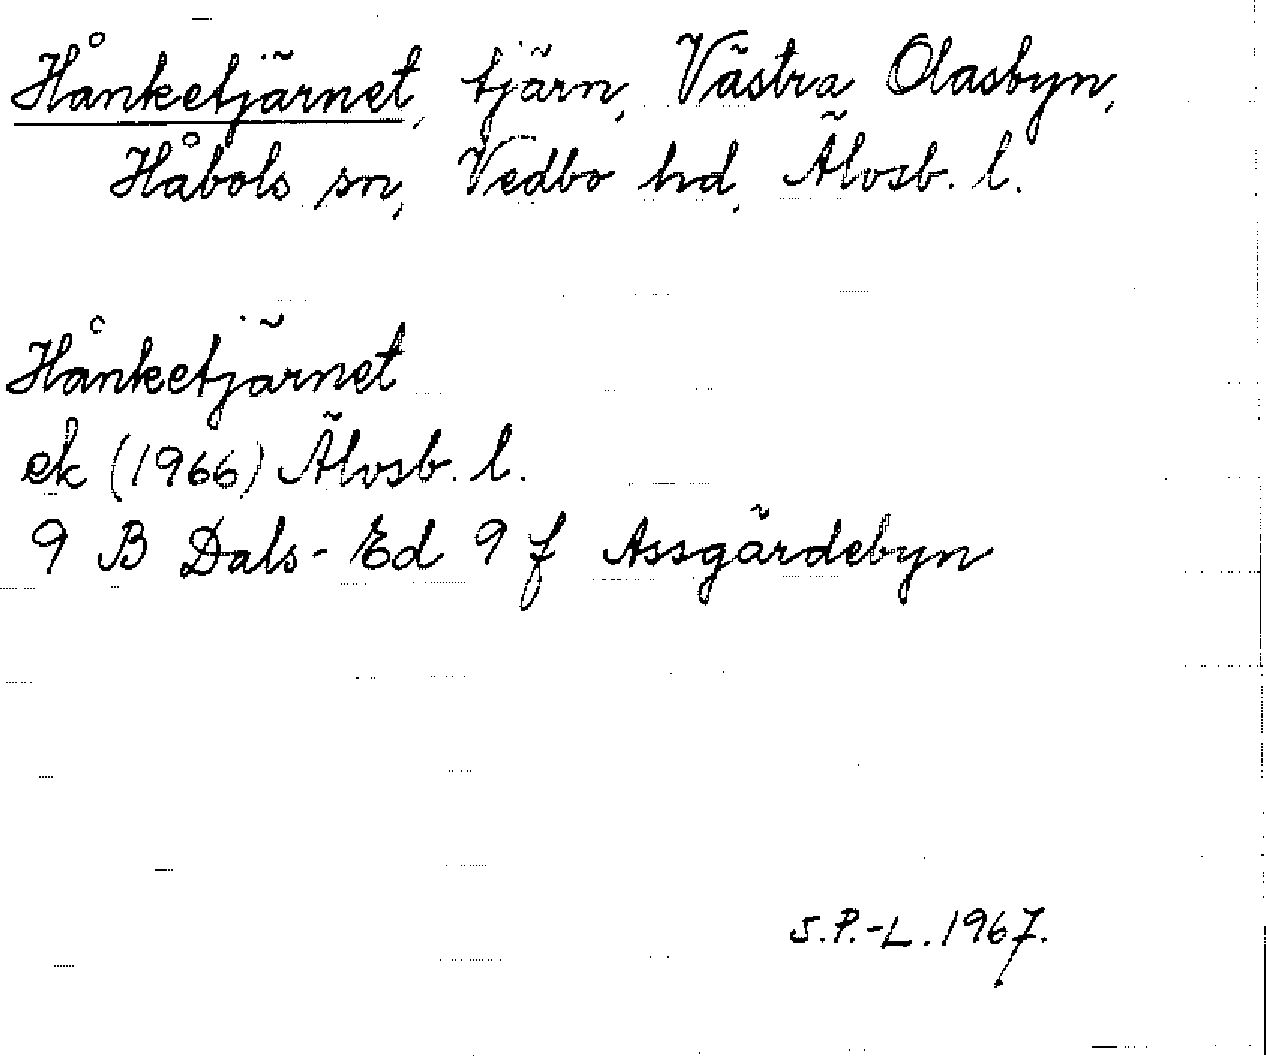 Hånketjärnet, tjärn, Västra Olasbyn,
Håbols sn, Vedbo hd, Älvsb. l.
Hånketjärnet
ek (1966) Älvsb. l.
9 B Dals-Ed 9 f Assgärdebyn
S.P.-L. 1967.